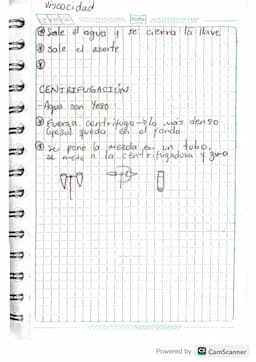 Viscocidad
Sale el agua y se cierra la llave
Sale el aceite
CENTRIFUGACIÓN
-Agua con Yeso
Fuerza centrifuga → lo más denso
(yeso) queda en el fondo
Se pone la mezcla en un tubo,
se mete a la centrifugadora y gira
Powered by CS CamScanner